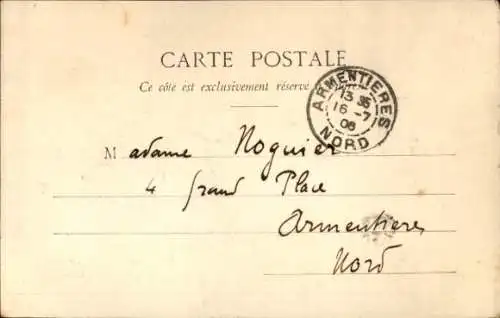 CARTE POSTALE
Ce côte est exclusivement réservé
ARMENTIERES
13 35
16 - 7
06
NORD
Madame Noguier
4 Grand Place
Armentieres
Nord